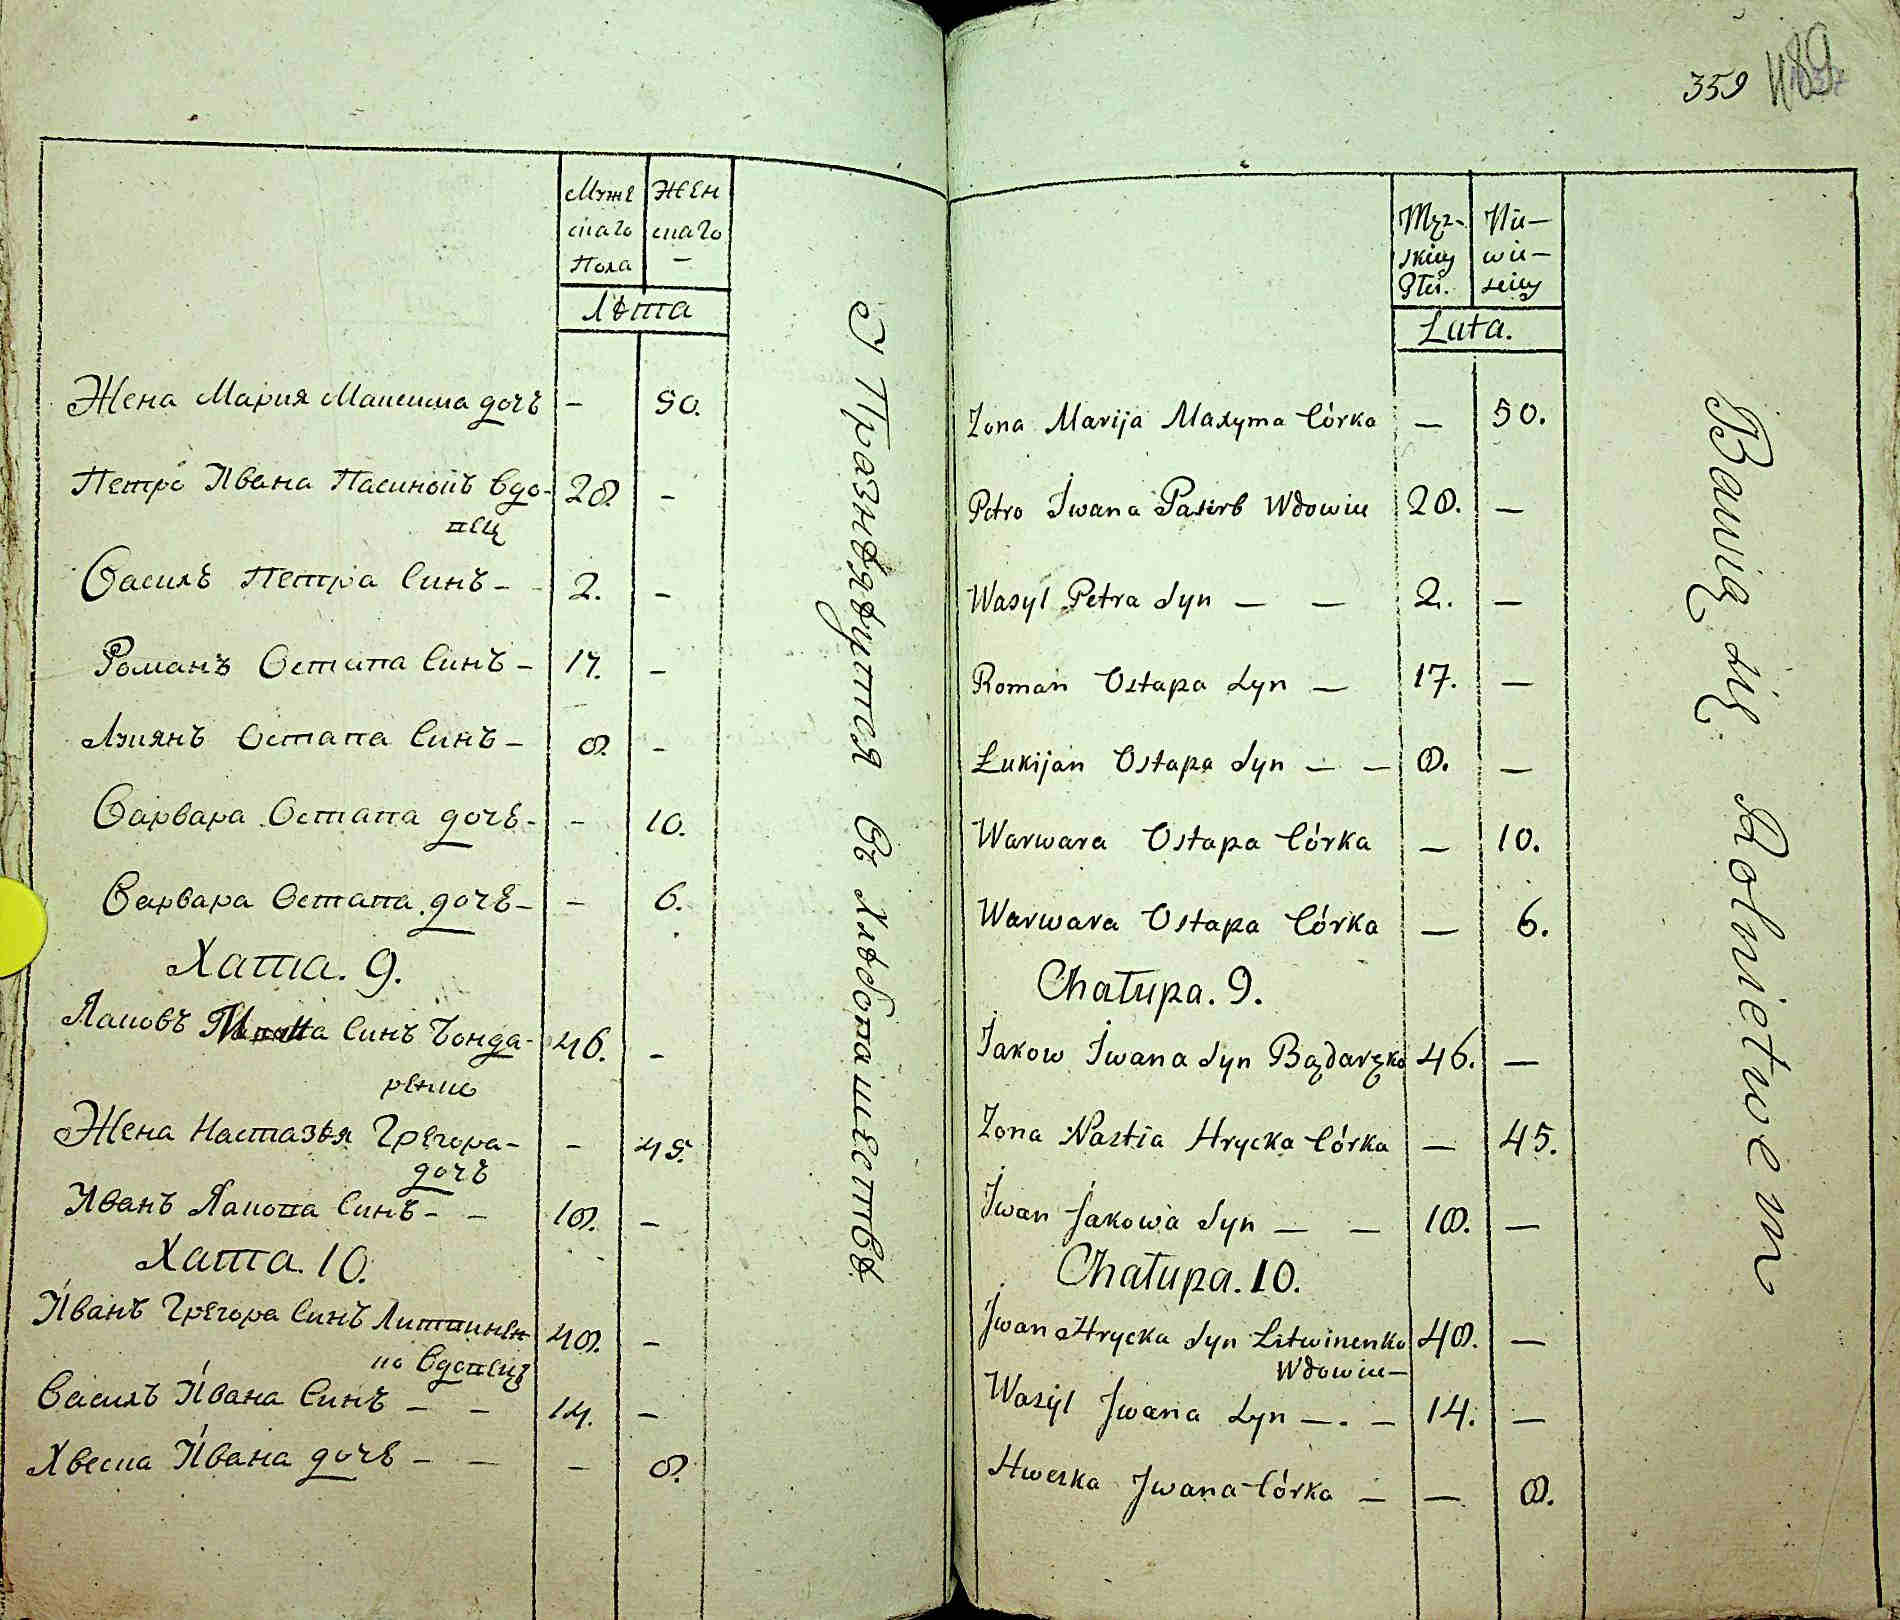 Муже
скаго
Пола
Жен
скаго
—
Лѣта
Жена Мария Максима дочъ — 50.
Петро Ивана Пасинокъ вдо- 28. —
вец
Василъ Петра Синъ — 2. —
Романъ Остапа Синъ — 17. —
Лукиянъ Остапа Синъ — 8. —
Варвара Остапа дочъ — — 10.
Варвара Остапа дочъ — — 6.
Хата. 9.
Яковъ Синъ Бонда- 46. —
ренко
Жена Настазѣя Грегора — — 45.
дочъ
Иванъ Якова Синъ — — 18. —
Хата. 10.
Иванъ Грегора Синъ Литвинен 48. —
ко вдовецъ
Василъ Ивана Синъ — — 14. —
Хвеска Ивана дочъ — — — 8.
въ хлѣбопашествѣ
359
Męz-
kiey
Płci.
Nie-
wie-
sciey
Lata.
Zona Marija Maxyma Córka — 50.
Petro Iwana Pasirb Wdowiec 28. —
Wasyl Petra Syn — — 2. —
Roman Ostapa Syn — 17. —
Łukijan Ostapa Syn — — 8. —
Warwara Ostapa Córka — 10.
Warwara Ostapa Córka — 6.
Chałupa. 9.
Jakow Iwana Syn Bądaręko 46. —
Zona Nastia Hrycka Córka — 45.
Iwan Jakowa Syn — — 18. —
Chałupa. 10.
Iwan Hrycka Syn Litwinenko 48. —
Wdowiec —
Wasyl Iwana Syn — . — 14. —
Hweska Iwana Córka — — 8.
Bawią się Rolnictwem